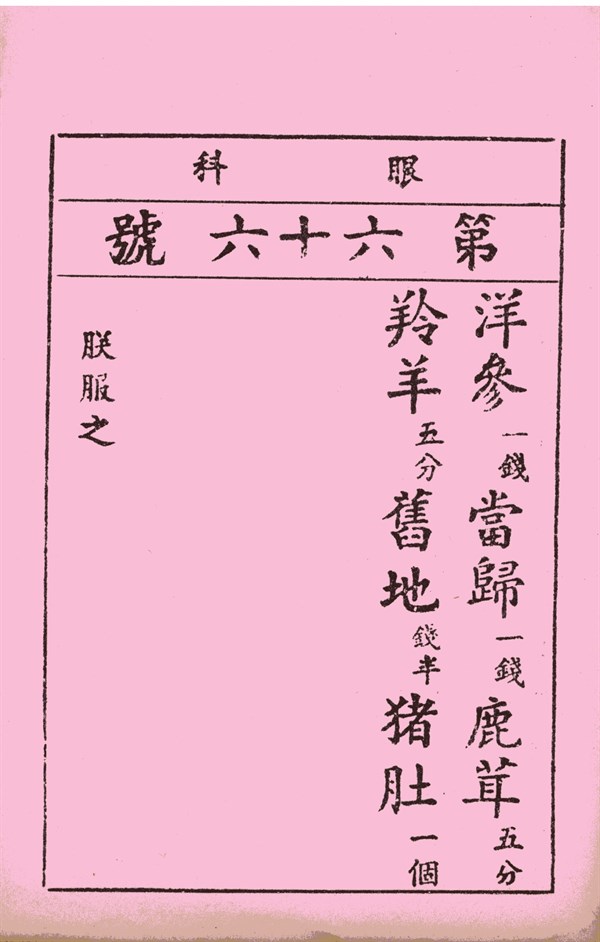 眼科
第六十六號
洋參一錢當歸一錢鹿茸五分
羚羊五分舊地錢半猪肚一個
朕服之